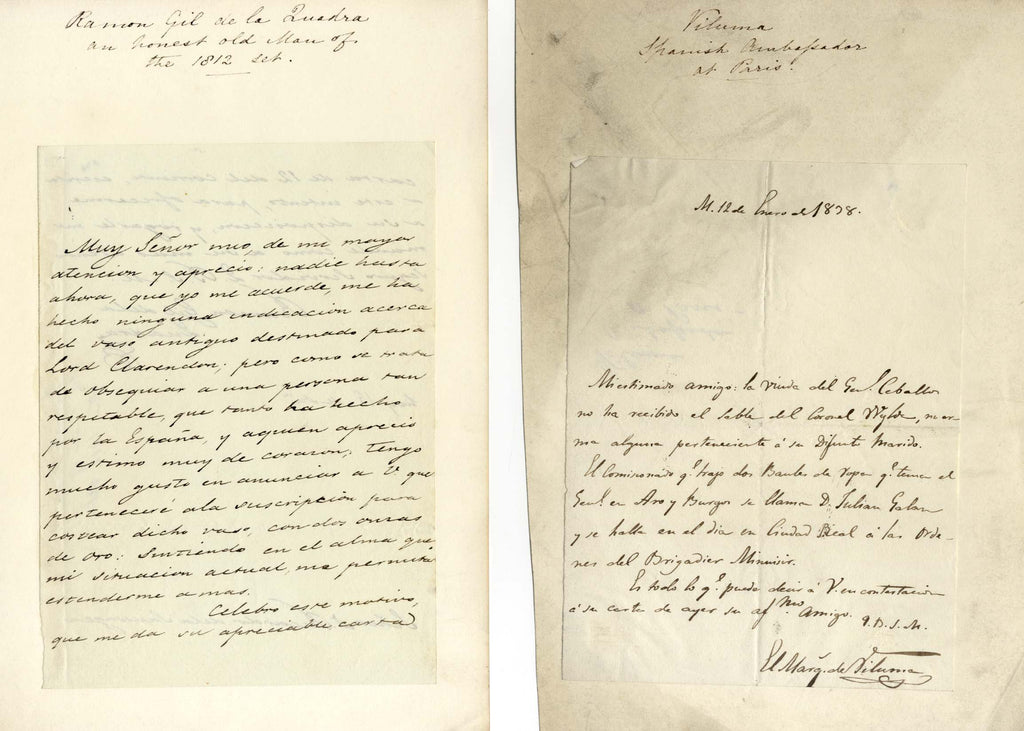 Ramon Gil de la Quadra
an honest old Man of
the 1812 set.
Muy Señor mio, de mi mayor
atencion y aprecio: nadie hasta
ahora, que yo me acuerde, me ha
hecho ninguna indicacion acerca
del vaso antiguo destinado para
Lord Clarendon; pero como se trata
de obsequiar a una persona tan
respetable, que tanto ha hecho
por la España, y aquien aprecio
y estimo muy de corazon; tengo
mucho gusto en anunciar a V. que
perteneceré ala suscripcion para
costear dicho vaso, con dos onzas
de oro: Sintiendo en el alma que
mi situacion actual, no permita
estenderme a mas.
Celebro este motivo,
que me da su apreciable carta
Viluma
Spanish Ambassador
at Paris.
M. 12 de Enero de 1838.
Mi estimado amigo: la viuda del Genl. Ceballos
no ha recibido el sable del Coronel Wylde, ni ar-
ma alguna perteneciente á su Difunto Marido.
El Comisionado qe. trajo dos Baules de ropa qe. tenia el
Genl. en Aro y Burgos se llama Dn. Julian Galan
y se halla en el dia en Ciudad Real á las Orde-
nes del Brigadier Minuisir.
Es todo lo qe. puede decir á V. en contestacion
á su carta de ayer su afmo. Amigo. Q. B. S. M.
El Marq. de Viluma